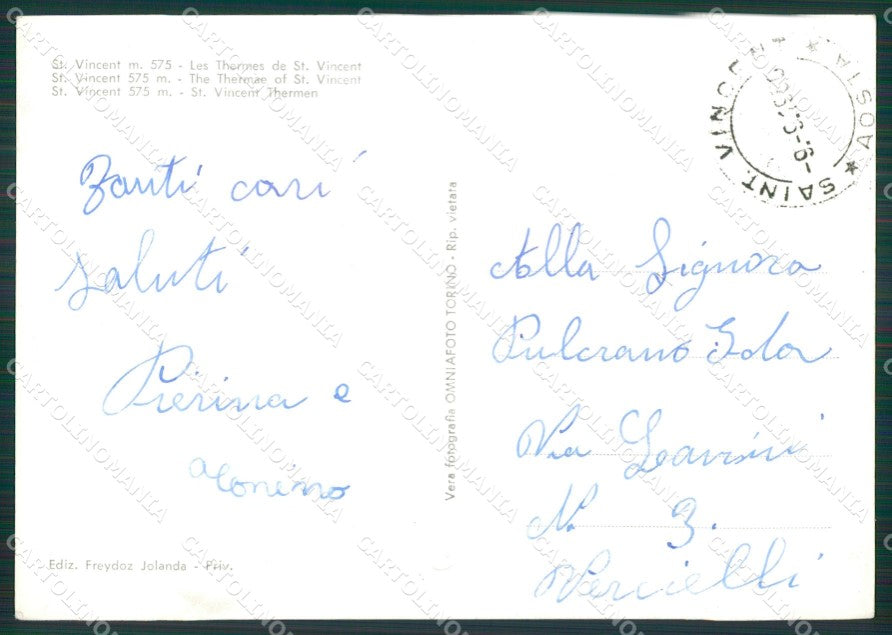 St. Vincent m. 575 - Les Thermes de St. Vincent
St. Vincent 575 m. - The Thermae of St. Vincent
St. Vincent 575 m. - St. Vincent Thermen
SAINT. VINCENT * AOSTA *
Tanti cari
saluti
Pierina e
Vera fotografia OMNIAFOTO TORINO - Rip. vietata
Alla Signora
Pulcrano
Via
N. 3.
Vercelli
Ediz. Freydoz Jolanda - Priv.
CARTOLINOMANIA